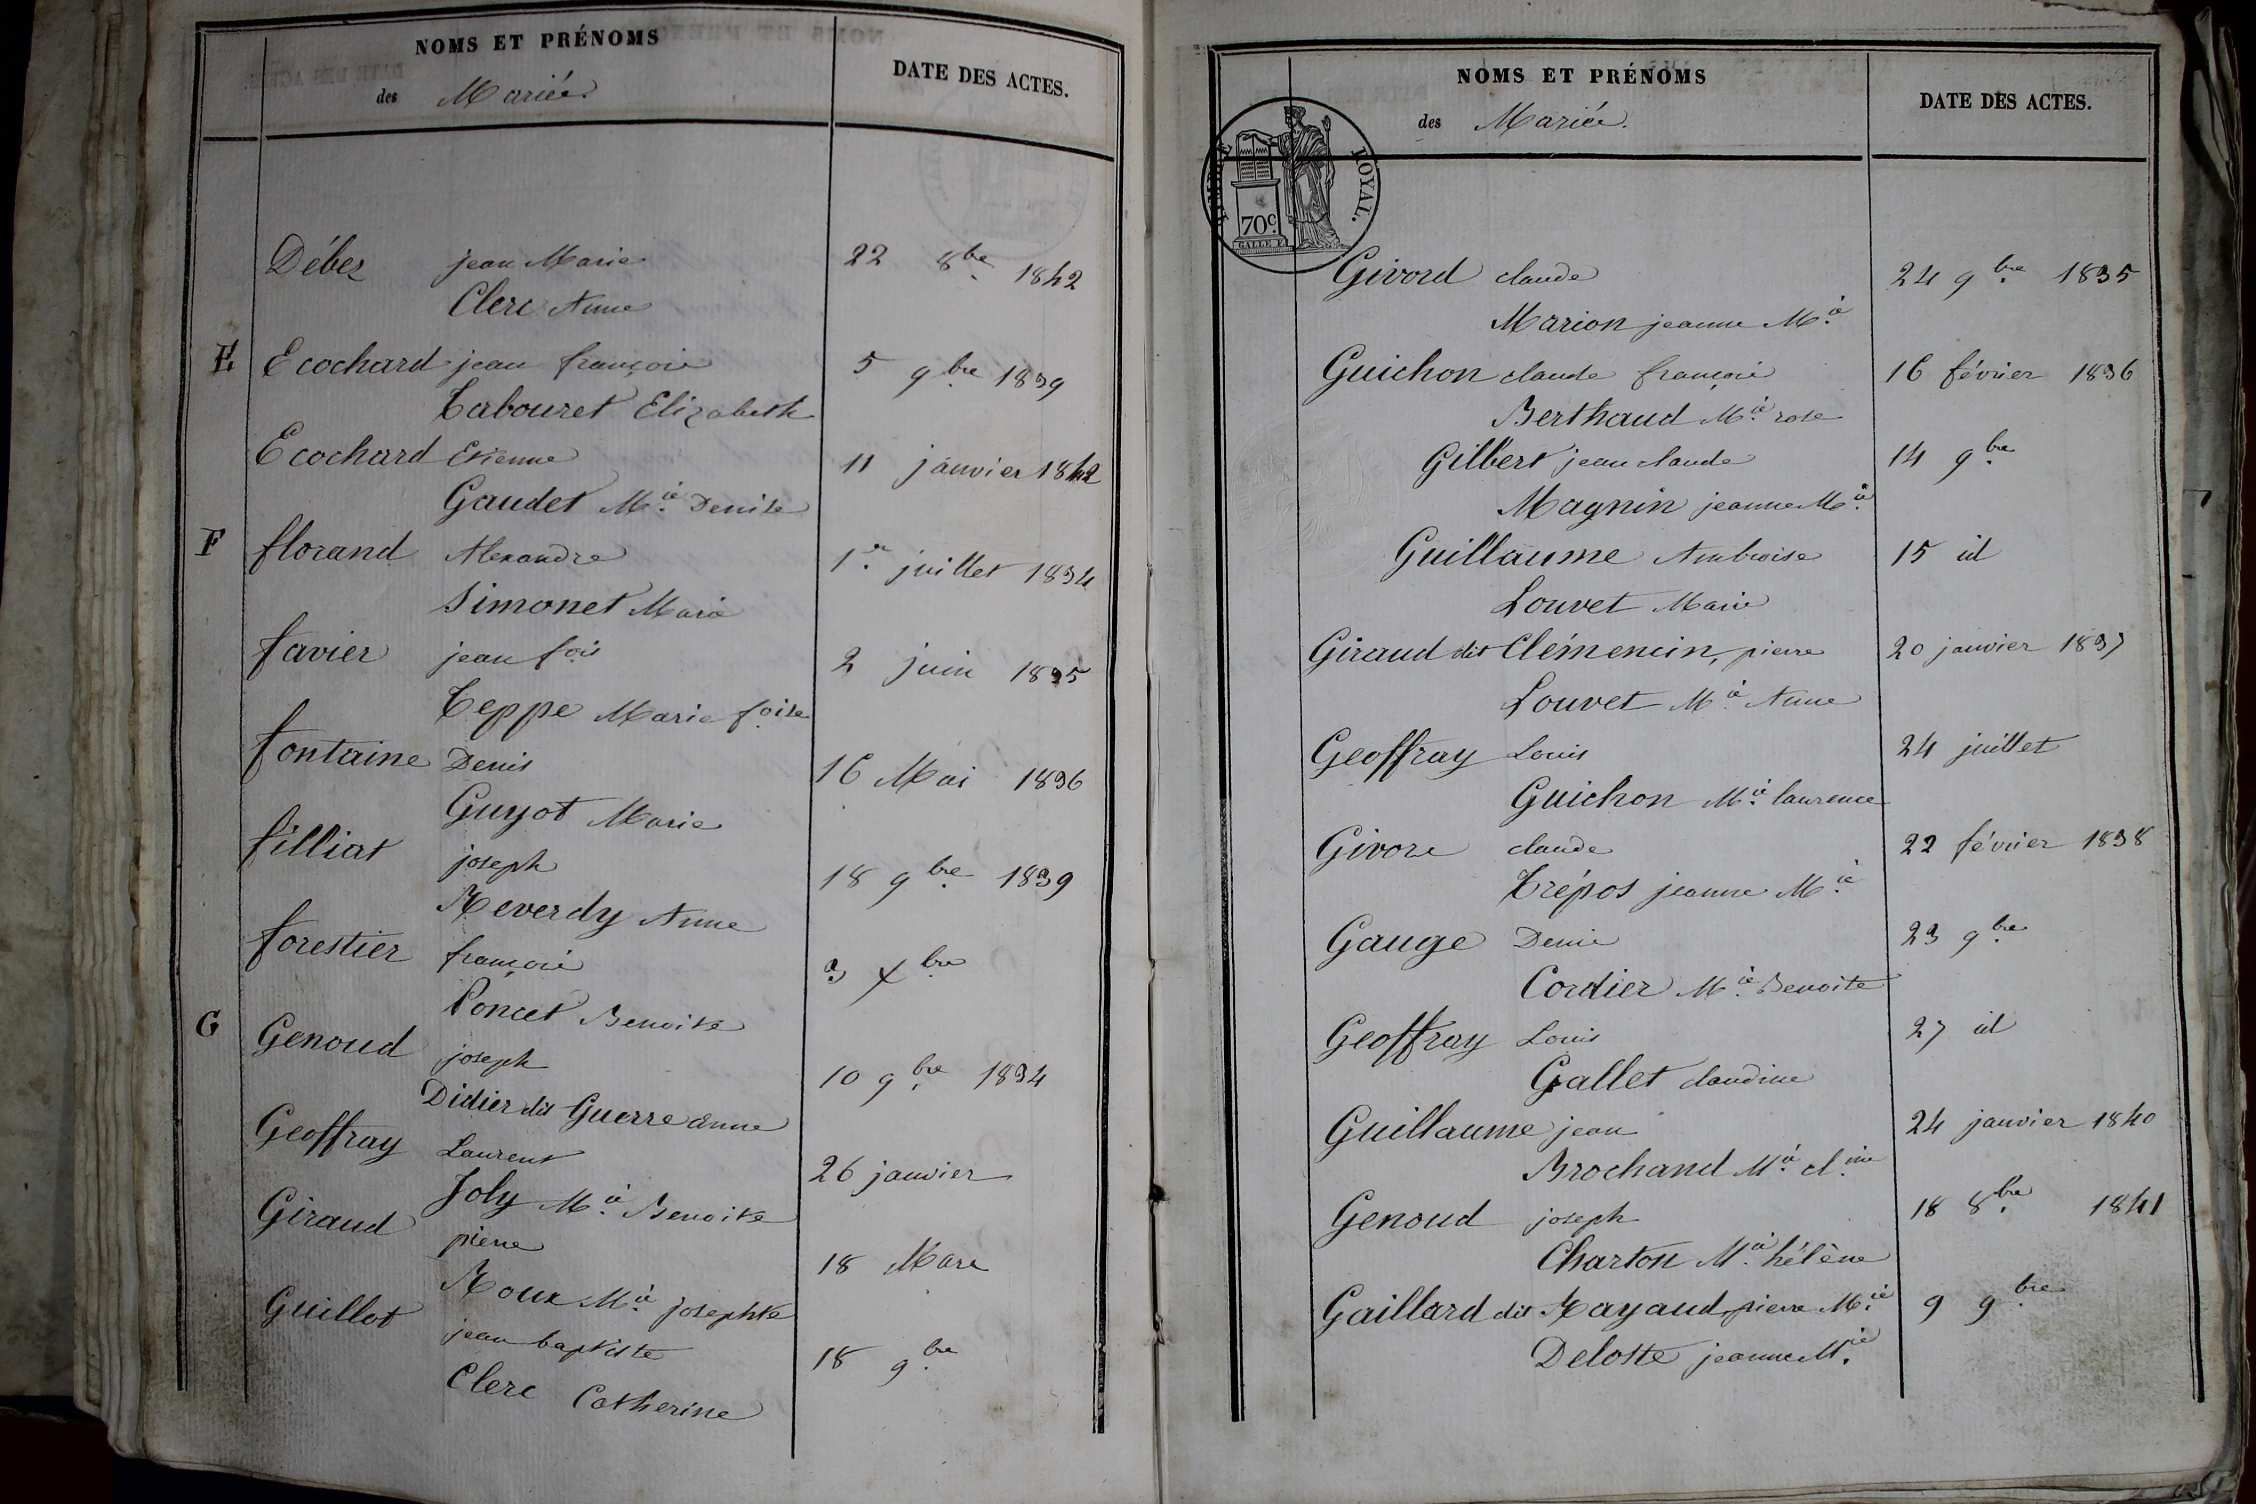 NOMS ET PRÉNOMS
des Mariés.
DATE DES ACTES.
Débez jean Marie 22 8bre 1842
Clerc Anne
E Ecochard jean françois 5 9bre 1839
Tabouret Elizabeth
Ecochard Etienne 11 janvier 1842
Gaudet Mie Denise
F florand Alexandre 1er juillet 1834
Simonet Marie
favier jean fois 2 juin 1835
Teppe Marie foise
fontaine Denis 16 Mai 1836
Guyot Marie
filliat joseph 18 9bre 1839
Reverdy Anne
forestier françois 3 xbre
Poncet Benoite
G Genoud joseph 10 9bre 1834
Didier dit Guerre anne
Geoffray Laurent 26 janvier
Joly Mie Benoite
Giraud pierre 18 Mars
Roux Mie josephte
Guillot jean baptiste 18 9bre
Clerc Catherine
NOMS ET PRÉNOMS
des Mariés.
DATE DES ACTES.
TIMBRE ROYAL.
70c.
Givord claude 24 9bre 1835
Marion jeanne Mie
Guichon claude françois 16 février 1836
Berthaud Mie rose
Gilbert jean claude 14 9bre
Magnin jeanne Mie
Guillaume Ambroise 15 id
Louvet Marie
Giraud dit Clémencin, pierre 20 janvier 1837
Louvet Mie Anne
Geoffray Louis 24 juillet
Guichon Mie laurence
Givore claude 22 février 1838
Trépos jeanne Mie
Gauge Denis 23 9bre
Cordier Mie Benoite
Geoffray Louis 27 id
Gallet claudine
Guillaume jean 24 janvier 1840
Brochand Mie cl.ine
Genoud joseph 18 8bre 1841
Charton Mie hélène
Gaillard dit Rayaud, pierre Mie 9 9bre
Deloste jeanne Mie